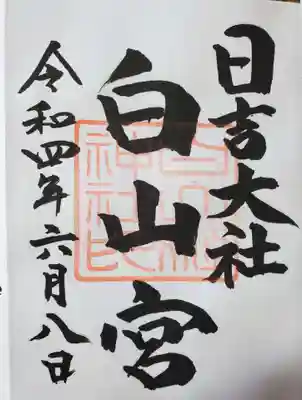 日吉大社
白山宮
令和四年六月八日